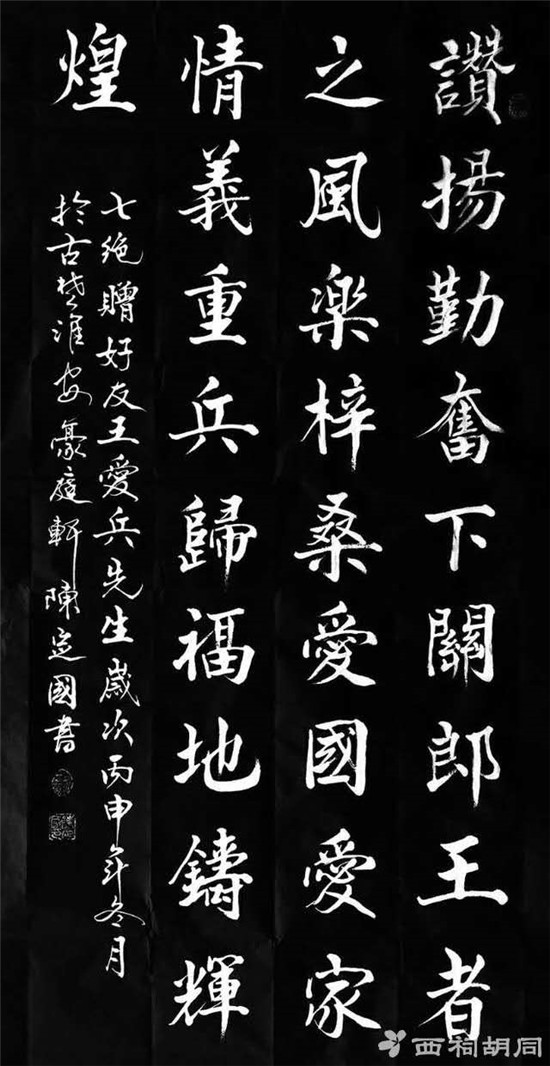 讚揚勤奮下關郎王者
之風楽梓桑愛國愛家
情義重兵歸福地鑄輝
煌
七絶贈好友王愛兵先生歲次丙申年冬月
於古楚淮安豪庭軒陳定國書
西祠胡同